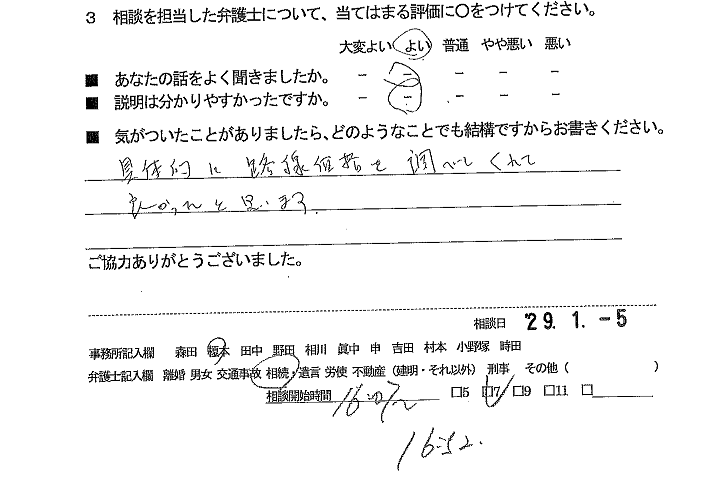 3 相談を担当した弁護士について、当てはまる評価に〇をつけてください。
大変よい よい 普通 やや悪い 悪い
■ あなたの話をよく聞きましたか。 － － － － －
■ 説明は分かりやすかったですか。 － － － － －
■ 気がついたことがありましたら、どのようなことでも結構ですからお書きください。
具体的に路線価格を調べてくれて
よかったと思います。
ご協力ありがとうございました。
相談日 '29. 1. -5
事務所記入欄 森田 榎本 田中 野田 相川 眞中 申 吉田 村本 小野塚 時田
弁護士記入欄 離婚 男女 交通事故 相続・遺言 労使 不動産（建明・それ以外） 刑事 その他（ ）
相談開始時間 16:07~ □5 □7 □9 □11 □
16:52.